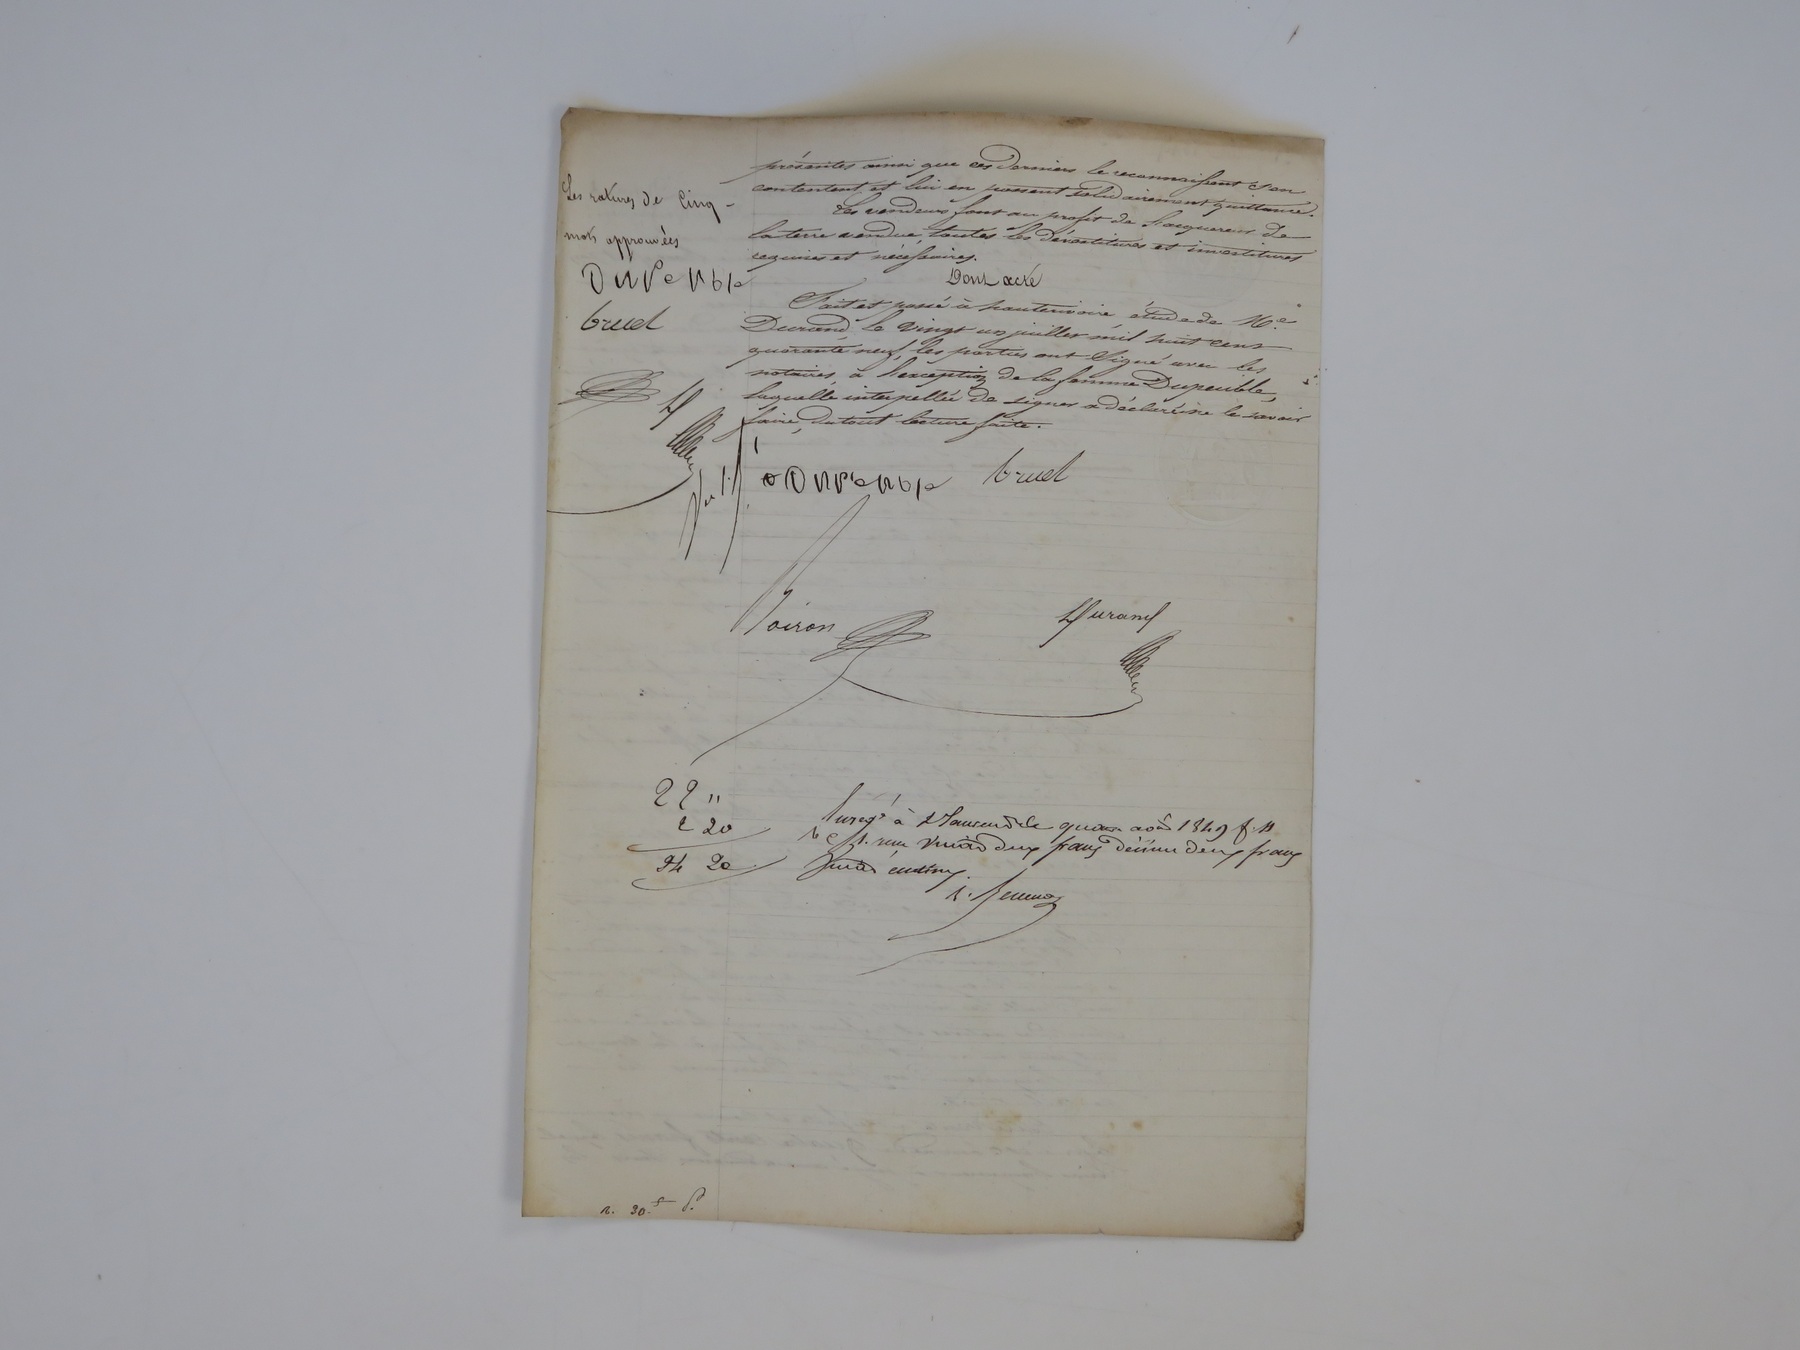 présentes ainsi que ces derniers le reconnaissent s'en
contentent et lui en passent solidairement quittance.
Les vendeurs font au profit de l'acquereur de
la terre vendue, toutes les dévestitures et investitures
requises et nécessaires.
Dont acte
Fait et passé à hauterivoire étude de Me
Durand le vingt un juillet mil huit cent
quarante neuf, les parties ont signé avec les
notaires à l'exception de la femme Dupeuble,
laquelle interpellée de signer a déclaré ne le savoir
faire, du tout lecture faite.
Les ratures de Cinq
mots approuvées
DUPeUble
bruel
DUPeUble bruel
Noiron Durand
22 "
2 20
24 20
Enregé à St Laurent le quinze août 1849 f. 11
Ro Ct. reçu vingt deux francs décime deux francs
vingt centimes.
r. 30. f. P.